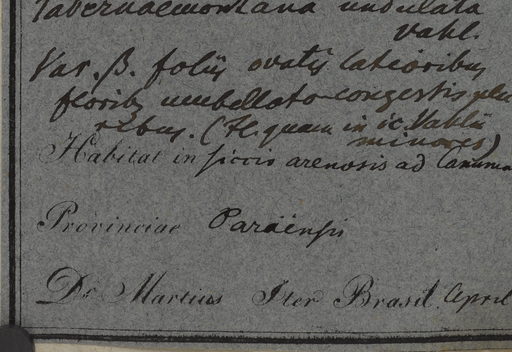 Tabernaemontana undulata
Vahl.
Var. β. foliis ovatis latioribus
floribus umbellato-congestis plu
ribus. (Fl. quam in ic. Vahlii
minores)
Habitat in siccis arenosis ad
Provinciae Paraënsis
Dr Martius Iter Brasil. April